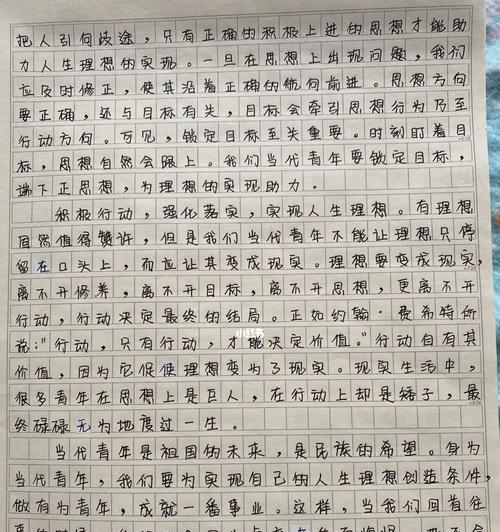 把人引向歧途，只有正确的积极上进的思想才能助
力人生理想的实现。一旦在思想上出现问题，我们
应及时修正，使其沿着正确的航向前进。思想方向
要正确，还与目标有关，目标会牵引思想行为乃至
行动方向。可见，锁定目标至关重要。时刻盯着目
标，思想自然会跟上。我们当代青年要锁定目标，
端下正思想，为理想的实现助力。
积极行动，强化落实，实现人生理想。有理想
固然值得赞许，但是我们当代青年不能让理想只停
留在口头上，而应让其变成现实。理想要变成现实，
离不开修养，离不开目标，离不开思想，更离不开
行动，行动决定最终的结局。正如约翰·费希特所
说："行动，只有行动，才能决定价值。"行动自有其
价值，因为它促使理想变为了现实。现实生活中，
很多青年在思想上是巨人，在行动上却是矮子，最
终碌碌无为地度过一生。
当代青年是祖国的未来，是民族的希望。身为
当代青年，我们要为实现自己的人生理想创造条件，
做有为青年，成就一番事业。这样，当我们回首往
小红书